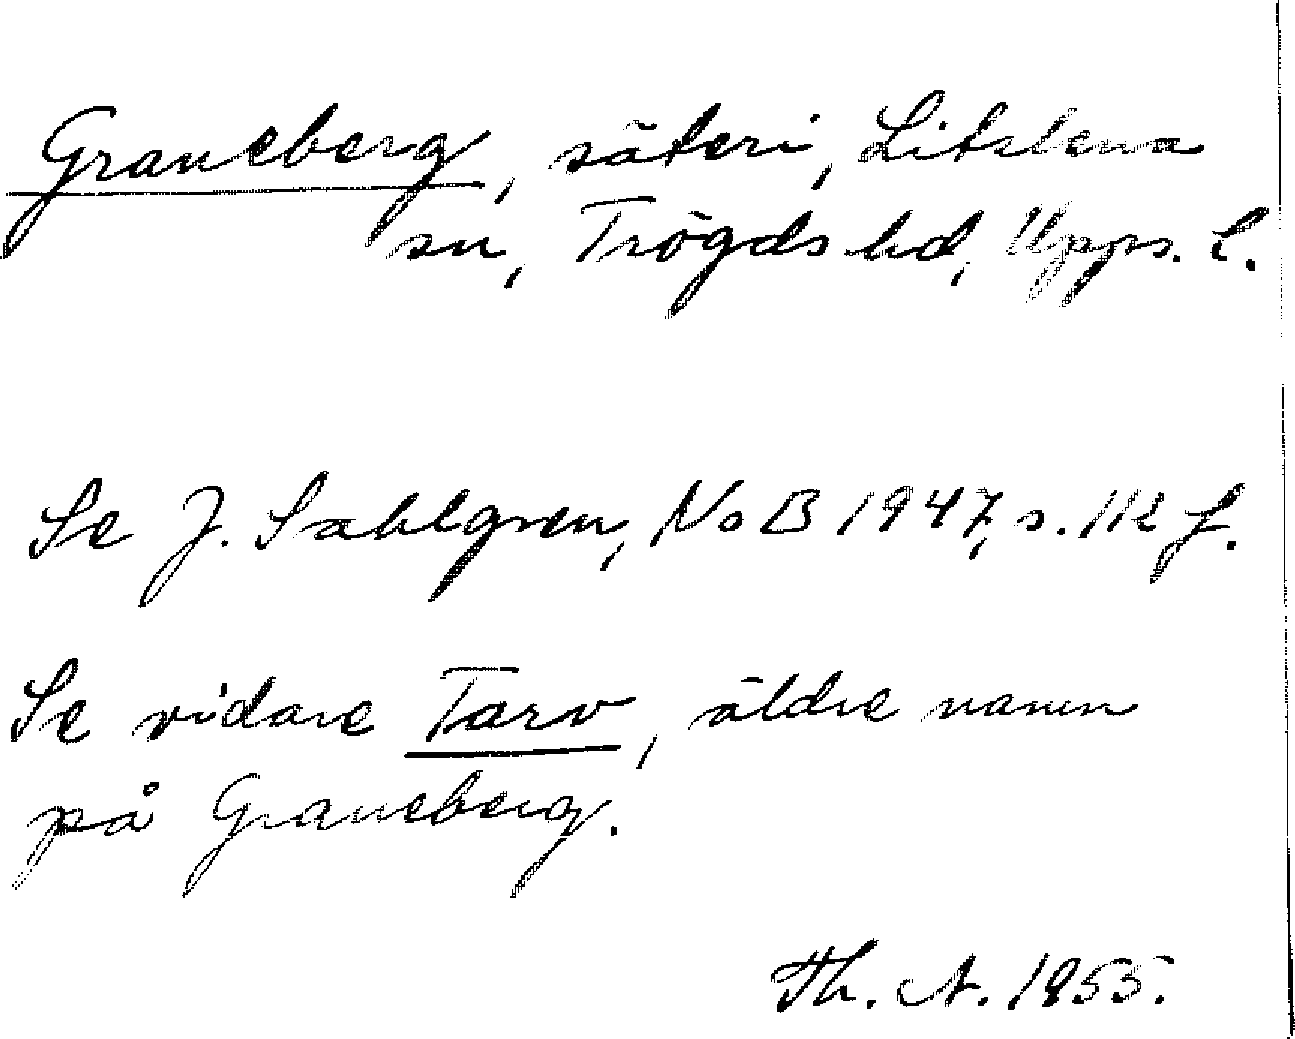 Graneberg, säteri, Litslena
sn, Trögds hd, Upps. l.
Se J. Sahlgren, NoB 1947, s. 112 f.
Se vidare Tarv, äldre namn
på Graneberg.
Th. A. 1955.